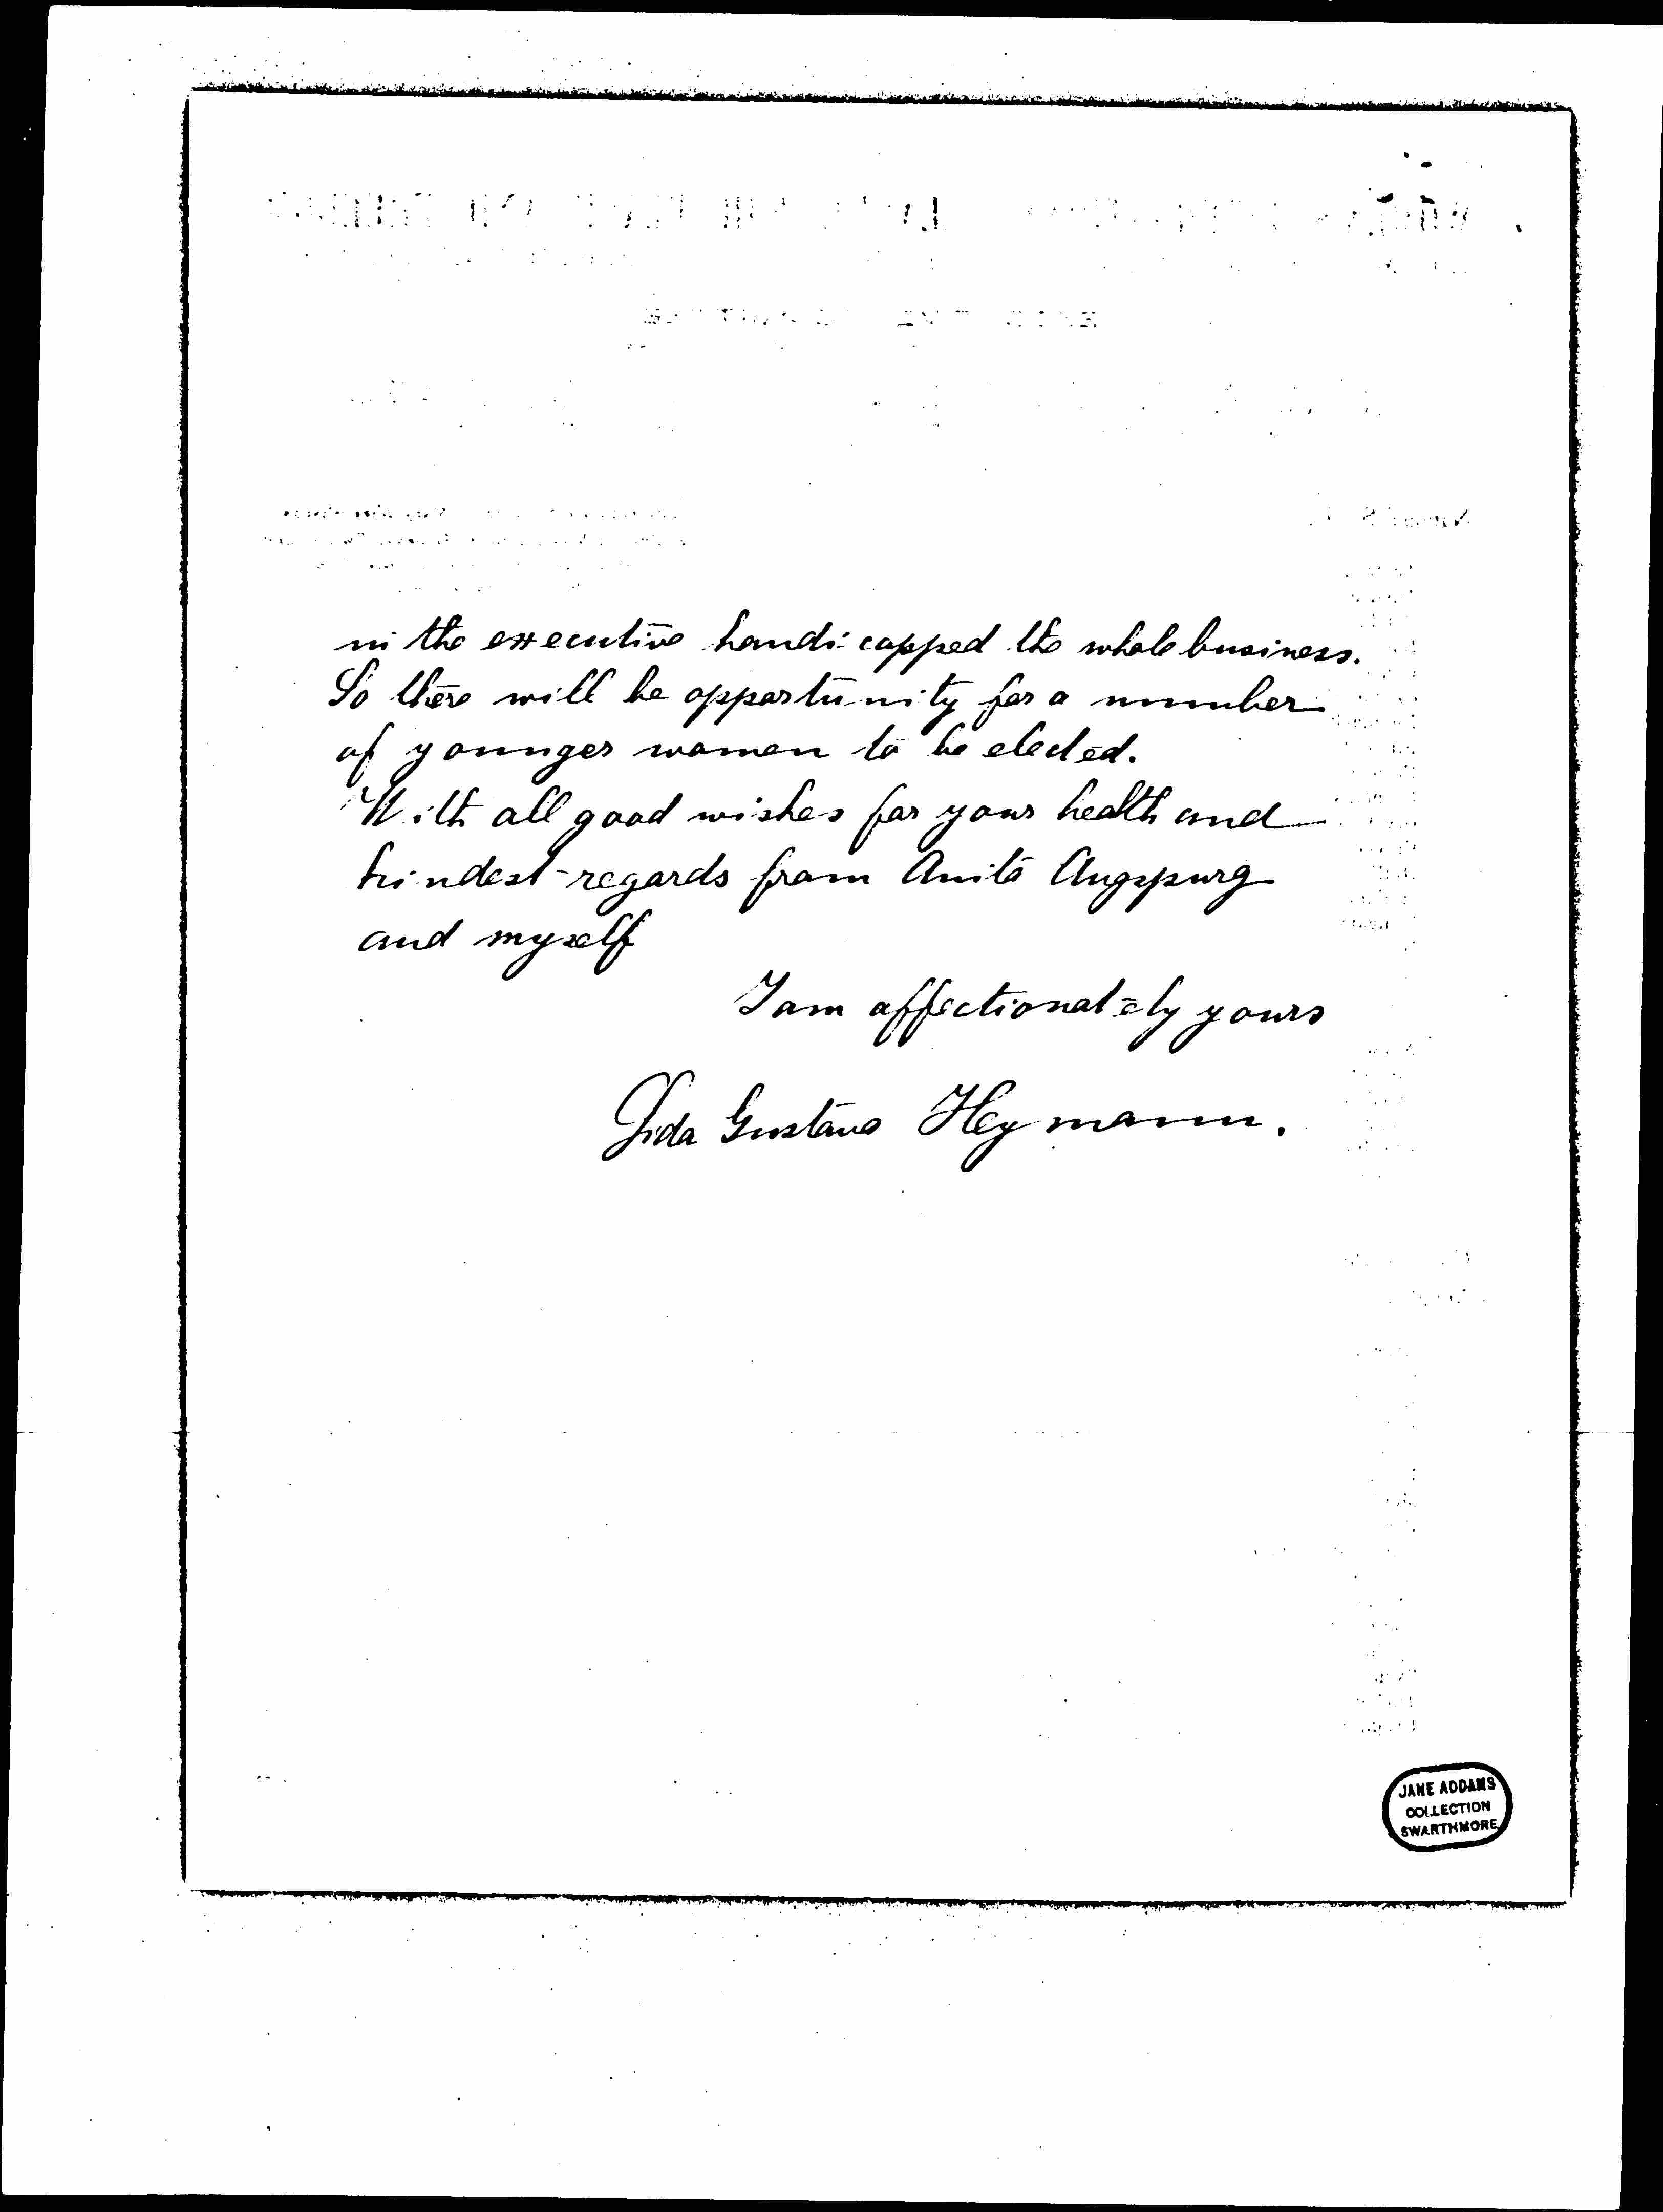 in the executive handicapped the whole business.
So there will be opportunity for a number
of younger women to be elected.
With all good wishes for your health and
kindest regards from Anita Augspurg
and myself
I am affectionately yours
Lida Gustava Heymann.
JANE ADDAMS
COLLECTION
SWARTHMORE